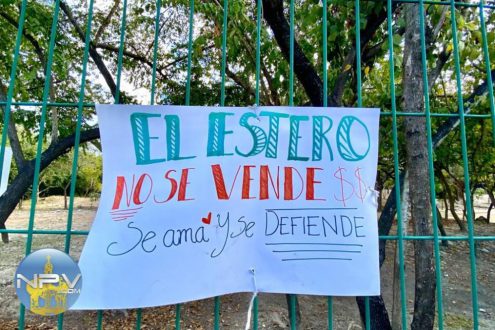 EL ESTERO
NO SE VENDE $$
Se ama y se DEFIENDE
NPV
.COM